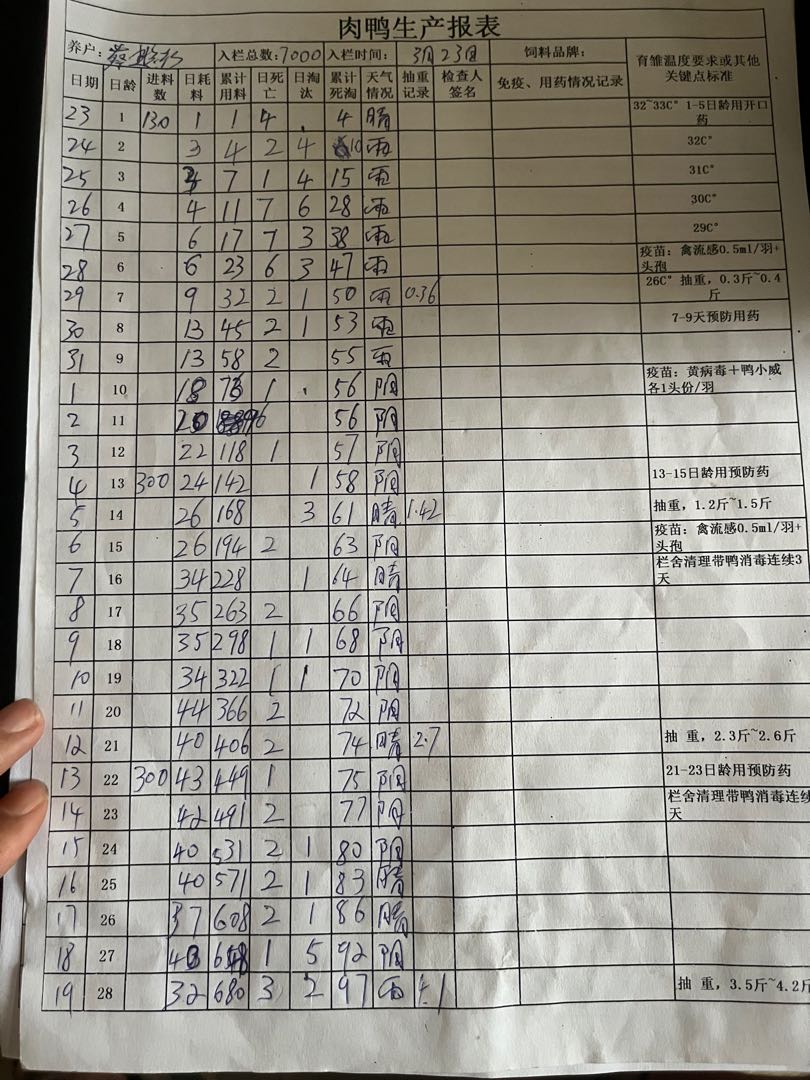 肉鸭生产报表
养户: 入栏总数:7000 入栏时间: 3月23日 饲料品牌: 育雏温度要求或其他关键点标准
日期 日龄 进料数 日耗料 累计用料 日死亡 日淘汰 累计死淘 天气情况 抽重记录 检查人签名 免疫、用药情况记录
23 1 130 1 1 4 . 4 晴 32~33C° 1-5日龄用开口药
24 2 3 4 2 4 10 雨 32C°
25 3 3 7 1 4 15 雨 31C°
26 4 4 11 7 6 28 雨 30C°
27 5 6 17 7 3 38 雨 29C°
28 6 6 23 6 3 47 雨 疫苗：禽流感0.5ml/羽+头孢
29 7 9 32 2 1 50 雨 0.36 26C° 抽重，0.3斤~0.4斤
30 8 13 45 2 1 53 雨 7-9天预防用药
31 9 13 58 2 55 雨
1 10 18 76 1 . 56 阴 疫苗：黄病毒＋鸭小威各1头份/羽
2 11 20 96 56 阴
3 12 22 118 1 57 阴
4 13 300 24 142 1 58 阴 13-15日龄用预防药
5 14 26 168 3 61 晴 1.42 抽重，1.2斤~1.5斤
6 15 26 194 2 63 阴 疫苗：禽流感0.5ml/羽+头孢
7 16 34 228 1 64 晴 栏舍清理带鸭消毒连续3天
8 17 35 263 2 66 阴
9 18 35 298 1 1 68 阴
10 19 34 322 1 1 70 阴
11 20 44 366 2 72 阴
12 21 40 406 2 74 晴 2.7 抽 重，2.3斤~2.6斤
13 22 300 43 449 1 75 阴 21-23日龄用预防药
14 23 42 491 2 77 阴 栏舍清理带鸭消毒连续 天
15 24 40 531 2 1 80 阴
16 25 40 571 2 1 83 晴
17 26 37 608 2 1 86 晴
18 27 40 648 1 5 92 阴
19 28 32 680 3 2 97 雨 4.1 抽 重，3.5斤~4.2斤